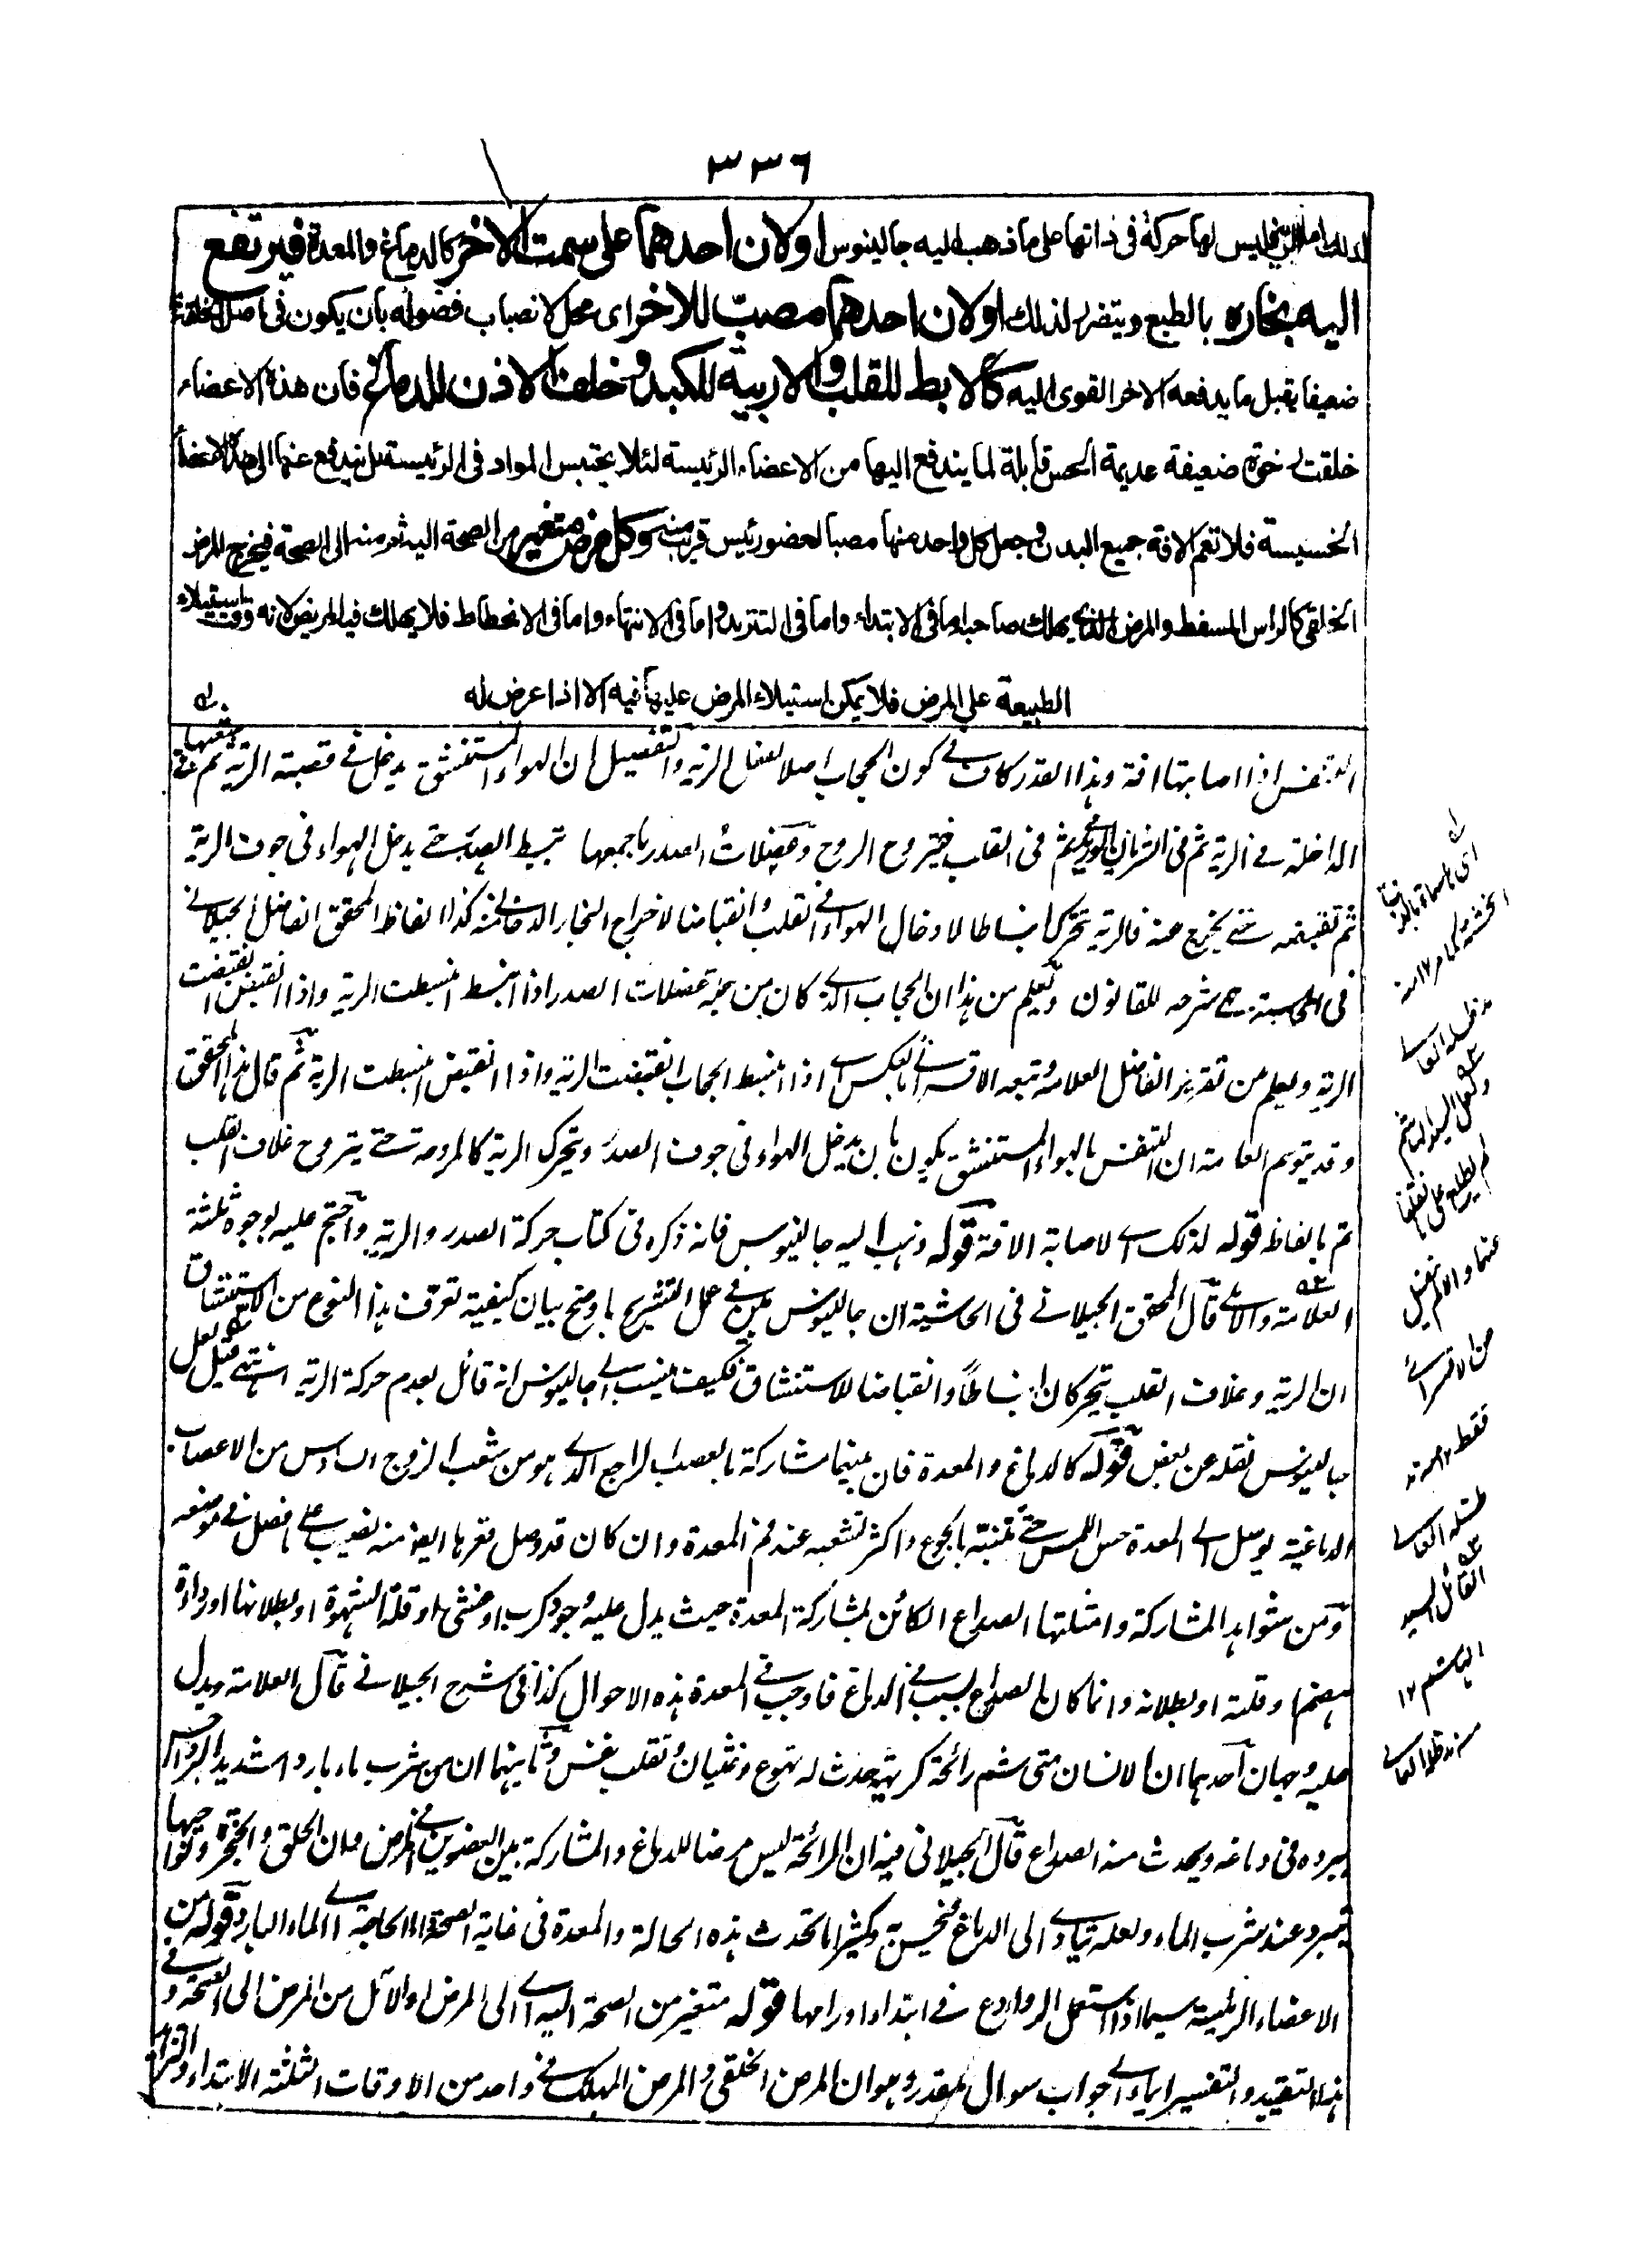 ٣٣٦
الرية ليس لها حركة فى ذاتها على ما ذهب اليه جالينوس او لان احدهما على سمت الاخر كالدماغ والمعدة فيرتفع
اليه بخاره بالطبع ويتضرر لذلك او لان احدهما مصبّ للاخر اى محل لانصباب فضوله بان يكون فى اصل الخلقة
ضعيفا يقبل ما يدفعه الاخر القوى اليه كالابط للقلب والاربية للكبد وخلف الاذن للدماغ فان هذه الاعضاء
خلقت رخوة ضعيفة عديمة الحس قابلة لما يندفع اليها من الاعضاء الرئيسة لئلا يحتبس المواد فى الرئيسة بل يندفع عنها الى هذه الاعضاء
الخسيسة فلا تعم الافة جميع البدن وجعل كل واحد منها مصبا لعضو رئيس قريب منه وكل مرض متغير من الصحة اليه ثم منه الى الصحة فيخرج المرض
الخلقى كالراس المسفط والمرض الذى يهلك صاحبه اما فى الابتداء واما فى التزيد واما فى الانتهاء واما فى الانحطاط فلا يهلك فيه المريض لانه وقت استيلاء
الطبيعة على المرض فلا يمكن استيلاء المرض عليها فيه الا اذا عرض له
التنفس اذا اصابتها افة وهذا القدر كاف فى كون الحجاب اصلا لعضل الرية والتفصيل ان الهواء المستنشق يدخل فى قصبة الرية ثم فى شعبها
الداخلة فى الرية ثم فى الشريان الوريدى ثم فى القلب فيتروح الروح وعضلات الصدر باجمعها تبسط الصدر حتى يدخل الهواء فى جوف الرية
ثم تقبضه حتى يخرج عنه فالرية تتحرك انبساطا لادخال الهواء فى القلب وانقباضا لاخراج البخار الدخانى منه كذا الفاظ المحقق الفاضل الجيلانى
فى الحاشية فى شرحه للقانون ويعلم من هذا ان الحجاب الذى كان من جملة عضلات الصدر اذا انبسط انبسطت الرية واذا انقبض انقبضت
الرية ويعلم من تقرير الفاضل العلامة وتبعه الاقسرائى بالعكس اى اذا انبسط الحجاب انقبضت الرية واذا انقبض انبسطت الرية ثم قال هذا المحقق
وقد يتوهم العامة ان التنفس بالهواء المستنشق يكون بان يدخل الهواء فى جوف الصدر ويتحرك الرية كالمروحة حتى يتروح غلاف القلب
تم بالفاظه قوله لذلك اى لاصابة الافة قوله ذهب اليه جالينوس فانه ذكره فى كتاب حركة الصدر والرية واحتج عليه بوجوه ثلثة
العلامة والاملى قال المحقق الجيلانى فى الحاشية ان جالينوس بين فى عمل التشريح باوضح بيان كيفية تعرف هذا النوع من الاستنشاق
ان الرية وغلاف القلب يتحركان انبساطًا وانقباضا للاستنشاق فكيف ينسب الى جالينوس انه قائل بعدم حركة الرية انتهى قيل لعل
جالينوس نقله عن بعض قوله كالدماغ والمعدة فان بينهما مشاركة بالعصب الراجع الذى هو من شعب الزوج السادس من الاعصاب
الدماغية يوصل الى المعدة حس اللمس حتى تتنبه بالجوع واكثر تشعبه عند فم المعدة وان كان قد وصل قعرها ايضا منه نصيب على ما فصل فى موضعه
ومن شواهد المشاركة وامثلتها الصداع الكائن بمشاركة المعدة حيث يدل عليه وجود كرب او غثى او قلة الشهوة او بطلانها او رداءة
هضمها وقلته او بطلانه وانما كان الصداع لسبب فى الدماغ فاوجب فى المعدة هذه الاحوال كذا فى شرح الجيلانى قال العلامة ويدل
عليه وجهان احدهما ان الانسان متى شم رائحة كريهة حدث له تهوع وغثيان وتقلب نفس وثانيهما ان من شرب ماء بارد اشديد البرد احس
ببرده فى دماغه ويحدث منه الصداع قال الجيلانى فيه ان الرائحة ليس مرضا للدماغ والمشاركة بين العضوين فى المرض وان الحلق والحنجرة ونواحيها
تتبرد عند شرب الماء ولعله يتادى الى الدماغ فيحس به وكثيرا ما تحدث هذه الحالة والمعدة فى غاية الصحة والحاجة الى الماء البارد قوله من
الاعضاء الرئيسة سيما اذا استعمل الروادع فى ابتداء اورامها قوله متغير من الصحة اليه اى الى المرض اولا ثم من المرض الى الصحة وفى
هذا التقييد والتفسير ايماء الى جواب سوال مقدر وهو ان المرض الخلقى والمرض المهلك فى واحد من الاوقات الثلثة الابتداء والتزايد
القائل السيد
الهاشم ١٢
منه مد ظله العالى